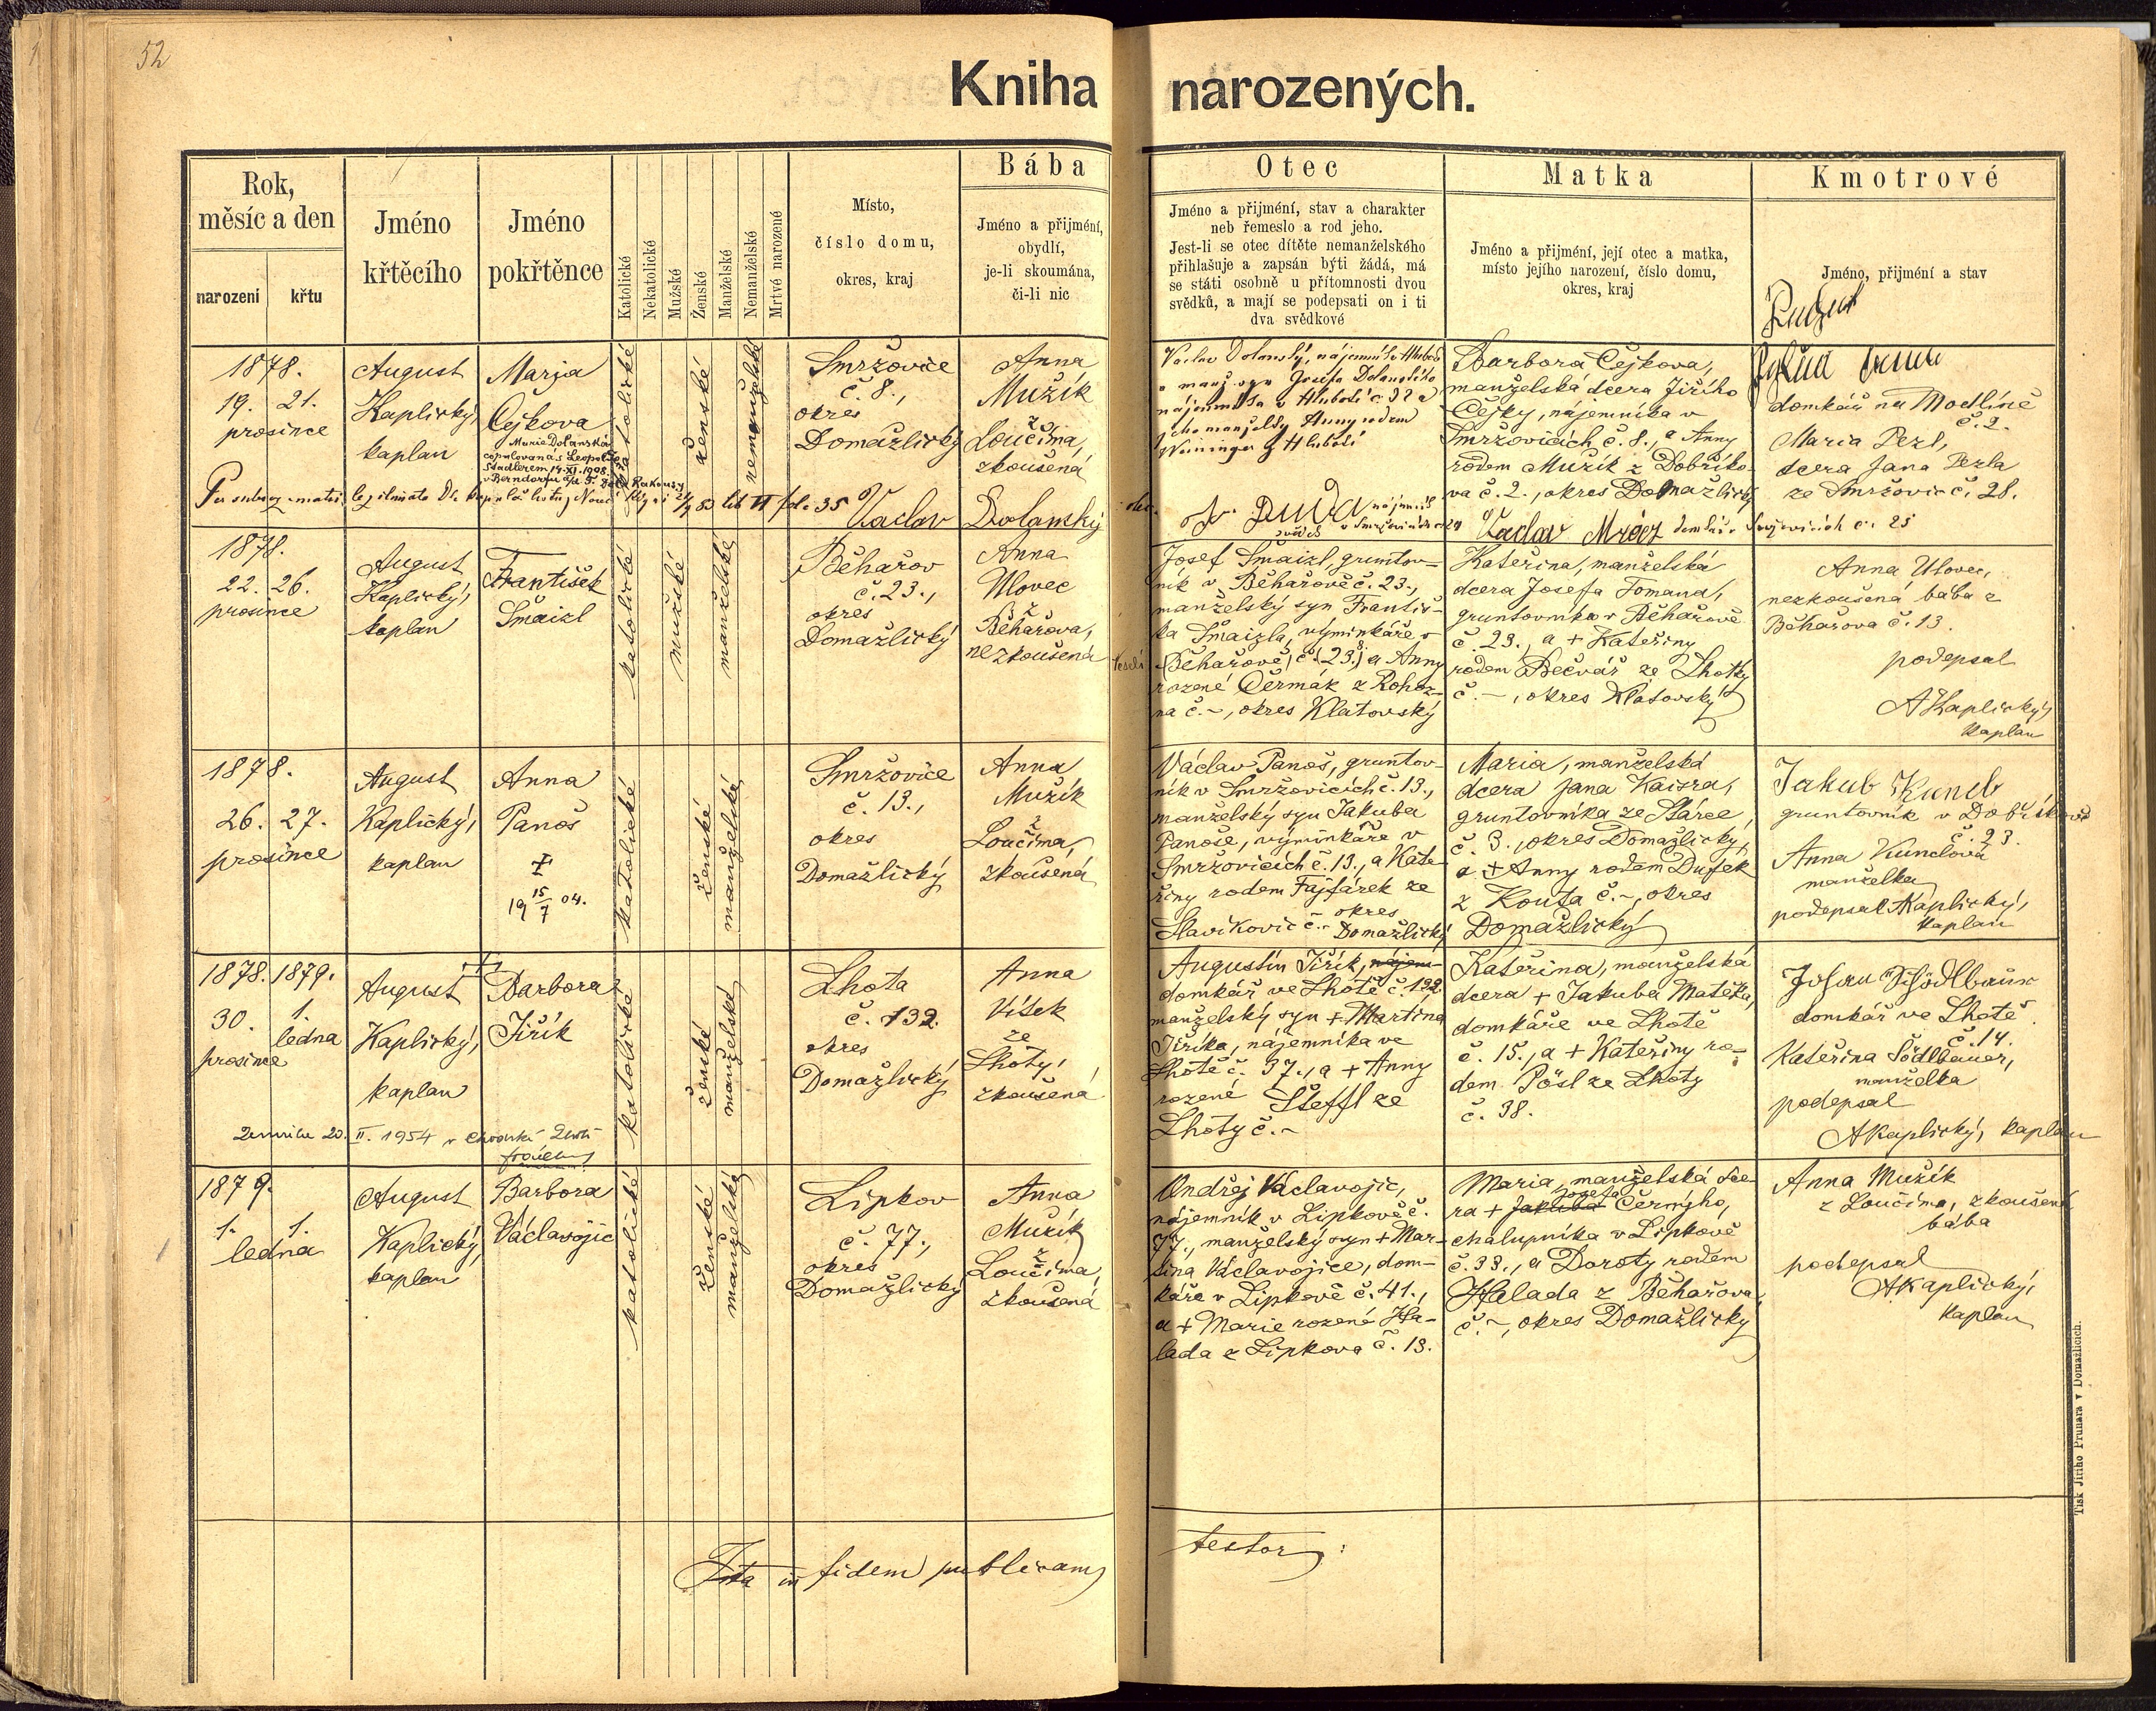 52
Kniha narozených.
Rok,
měsíc a den
narození
křtu
Jméno
křtěcího
Jméno
pokřtěnce
Katolické
Nekatolické
Mužské
Ženské
Manželské
Nemanželské
Mrtvé narozené
Místo,
číslo domu,
okres, kraj
Bába
Jméno a přijmění,
obydlí,
je-li skoumána,
či-li nic
Otec
Jméno a přijmění, stav a charakter
neb řemeslo a rod jeho.
Jest-li se otec dítěte nemanželského
přihlašuje a zapsán býti žádá, má
se státi osobně u přítomnosti dvou
svědků, a mají se podepsati on i ti
dva svědkové
Matka
Jméno a přijmění, její otec a matka,
místo jejího narození, číslo domu,
okres, kraj
Kmotrové
Jméno, přijmění a stav
1878.
19. 21.
prosince
August
Kaplický,
kaplan
Marja
Čejkova
Marie Dolanská
copulovaná s Leopoldem
Stadlerem 14.XI.1908
v Berndorfu
katolické
ženské
nemanželské
Smržovice
č. 8.,
okres
Domažlický
Anna
Mužík
z
Loučima,
zkoušená
Václav Dolanský, nájemník
a manž. syn Josefa Dolanského
nájemníka v Hluboké č. 32 a
jeho manželky Anny rodem
Weininger z Hluboké
Barbora Čejkova,
manželská dcera Jiřího
Čejky, nájemníka v
Smržovicích č. 8., a Anny
rodem Mužík z Dobříko-
va č. 2., okres Domažlický
domkář na Modlíně
č. 2.
Maria Pezl,
dcera Jana Pezla
ze Smržovic č. 28.
fol. 35 Vaclav Dolansky
otec.
Duda nájemník
svědek v Smržovicích
Vaclav Mráz domkář v
č. 25
1878.
22. 26.
prosince
August
Kaplický,
kaplan
František
Šmaizl
katolické
mužské
manželské
Běhařov
č. 23.,
okres
Domažlický
Anna
Ulovec
z
Běhařova,
nezkoušená
Josef Šmaizl, gruntov-
ník v Běhařově č. 23.,
manželský syn Františ-
ka Šmaizla, výminkáře v
Běhařově, č. (23.) a Anny
rozené Čermák z Rohoz-
na č. –, okres Klatovský
Kateřina, manželská
dcera Josefa Tomana,
gruntovníka v Běhařově
č. 23., a + Kateřiny
rodem Bečvář ze Lhotky
č. –, okres Klatovský
Anna Ulovec,
nezkoušená bába z
Běhařova č. 13.
podepsal
AKaplický,
kaplan
1878.
26. 27.
prosince
August
Kaplický,
kaplan
Anna
Panoš
‡
19 15/7 04.
katolické
ženské
manželské
Smržovice
č. 13.,
okres
Domažlický
Anna
Mužík
z
Loučima,
zkoušená
Václav Panoš, gruntov-
ník v Smržovicích č. 13.,
manželský syn Jakuba
Panoše, výminkáře v
Smržovicích č. 13., a Kate-
řiny rodem Fajfárek ze
Slavíkovic č. – okres
Domažlický
Maria, manželská
dcera Jana Kaisra,
gruntovníka ze Stárce
č. 3., okres Domažlický,
a + Anny rodem Dufek
z Kouta č. –, okres
Domažlický
Jakub Kuncl
gruntovník v Dobříkově
č. 23.
Anna Kunclova
manželka
podepsal AKaplický,
kaplan
1878. 1879.
30. 1.
prosince ledna
August
Kaplický,
kaplan
‡
Barbora
Jiřík
katolické
ženské
manželské
Lhota
č. 132.
okres
Domažlický
Anna
Vítek
ze
Lhoty,
zkoušená
Augustin Jiřík, nájem-
domkář ve Lhotě č. 132
manželský syn + Martina
Jiříka, nájemníka ve
Lhotě č. 37., a + Anny
rozené Šteffl ze
Lhoty č. –
Kateřina, manželská
dcera + Jakuba Matějka,
domkáře ve Lhotě
č. 15., a + Kateřiny ro-
dem Pösl ze Lhoty
č. 38.
domkář ve Lhotě
č. 14.
Kateřina Södlbauer,
manželka
podepsal
AKaplický, kaplan
Zemřela 20. II. 1954 v Chodské Lhotě
1879.
1. 1.
ledna
August
Kaplický,
kaplan
Barbora
Václavojic
katolické
ženské
manželské
Lipkov
č. 77.,
okres
Domažlický
Anna
Mužík
z
Loučima,
zkoušená
Ondřej Václavojic,
nájemník v Lipkově č.
77., manželský syn + Mar-
tina Václavojice, dom-
káře v Lipkově č. 41.,
a + Marie rozené Ha-
lada z Lipkova č. 13.
Maria, manželská dce-
Josefa
ra + Jakuba Černýho,
chalupníka v Lipkově
č. 33., a Doroty rodem
Halada z Běhařova
č. –, okres Domažlický
Anna Mužík
z Loučima, zkoušená
bába
podepsal
AKaplický,
kaplan
Ita in fidem publicam testor:
Tisk Jiřího Prunara v Domažlicích.